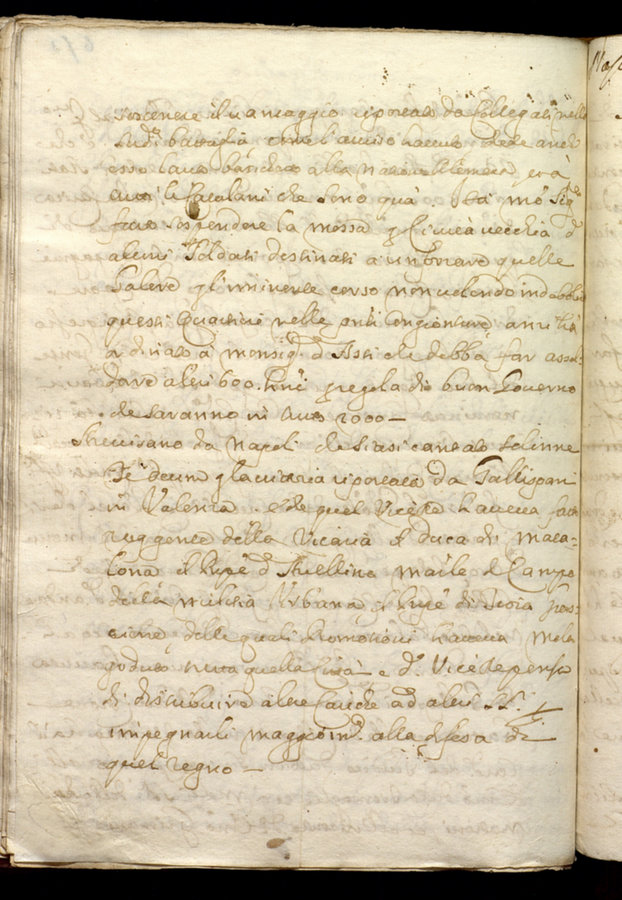 sostenere il vantaggio riportato da Collegati nella
sud.ª battaglia, come l'aviso havuto
esso l'avis alla natione Alemana, et à
tutti li Catalani che sono quà Stà mō Sig.re
fatto sospendere la mossa p Civita vecchia d
alcuni Soldati destinati a rinforzare quelle
Galere p l'imminente corso non volendo indebolir
questi Quartieri nelle p̄nti congionture, anzi hà
ordinato a monsig.r d Asti che debba far assol-
dare altri 600. p regola di buon Governo
che saranno in tutto 2000 —
S'hevisano da Napoli che si sia cantato solenne
Te deum p la vittoria riportata da Gallispani
in Valenza. e che quel Vicere haveva fatto
reggente della Vicaria il Duca di Mata-
lona il Prn̄pe d Avellino Maste d Campo
della militia Urbana, il Prn̄pe di
delle quali Promotioni haveva molto
goduto tutta quella Città e d.º Vice Re pensa
di distribuire altre Cariche ad altri SS.ri
impegnarli maggiorm.te alla difesa di
quel regno —